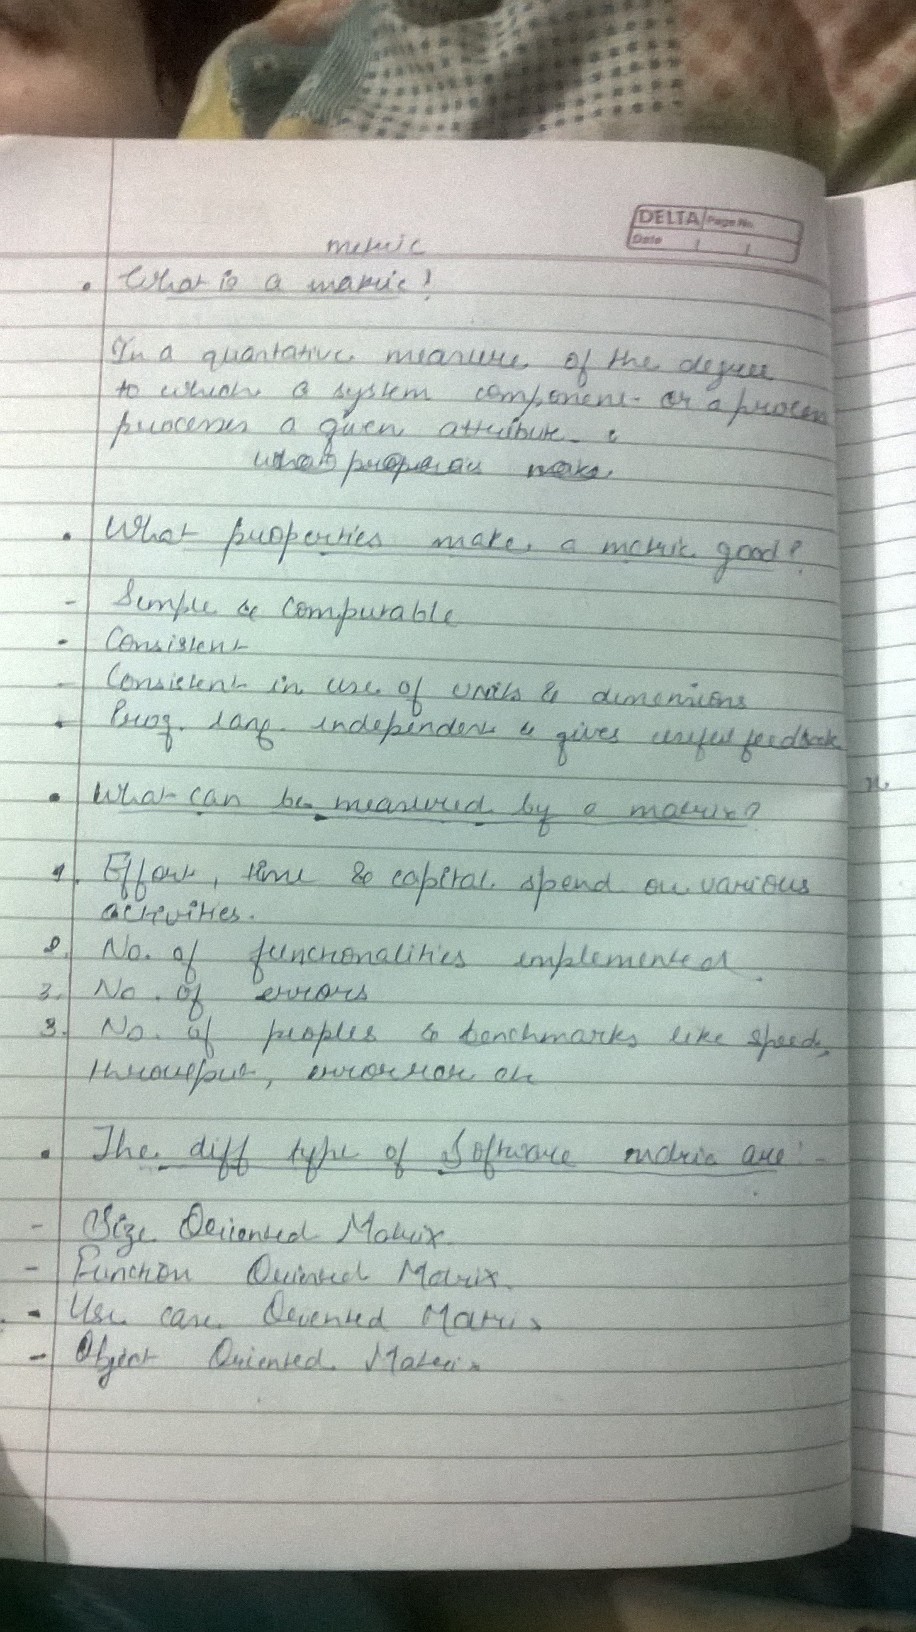 DELTA Page No.
Date / /
metric
• What is a matric!
In a quantative measure of the degree
to which a system component or a process
processes a given attribute.
what properties make
• What properties make a metric good?
- Simple & Computable
- Consistent
- Consistent in use of units & dimensions
- Prog. lang. independent & gives useful feedback
• What can be measured by a matrix?
1. Effort, time & capital spend on various
activities.
2. No. of functionalities implemented
3. No. of errors
3. No. of peoples & benchmarks like speed,
throughput, error
• The diff type of Software metric are:-
- Size Oriented Matrix
- Function Oriented Matrix
- Use case Oriented Matrix
- Object Oriented Matrix